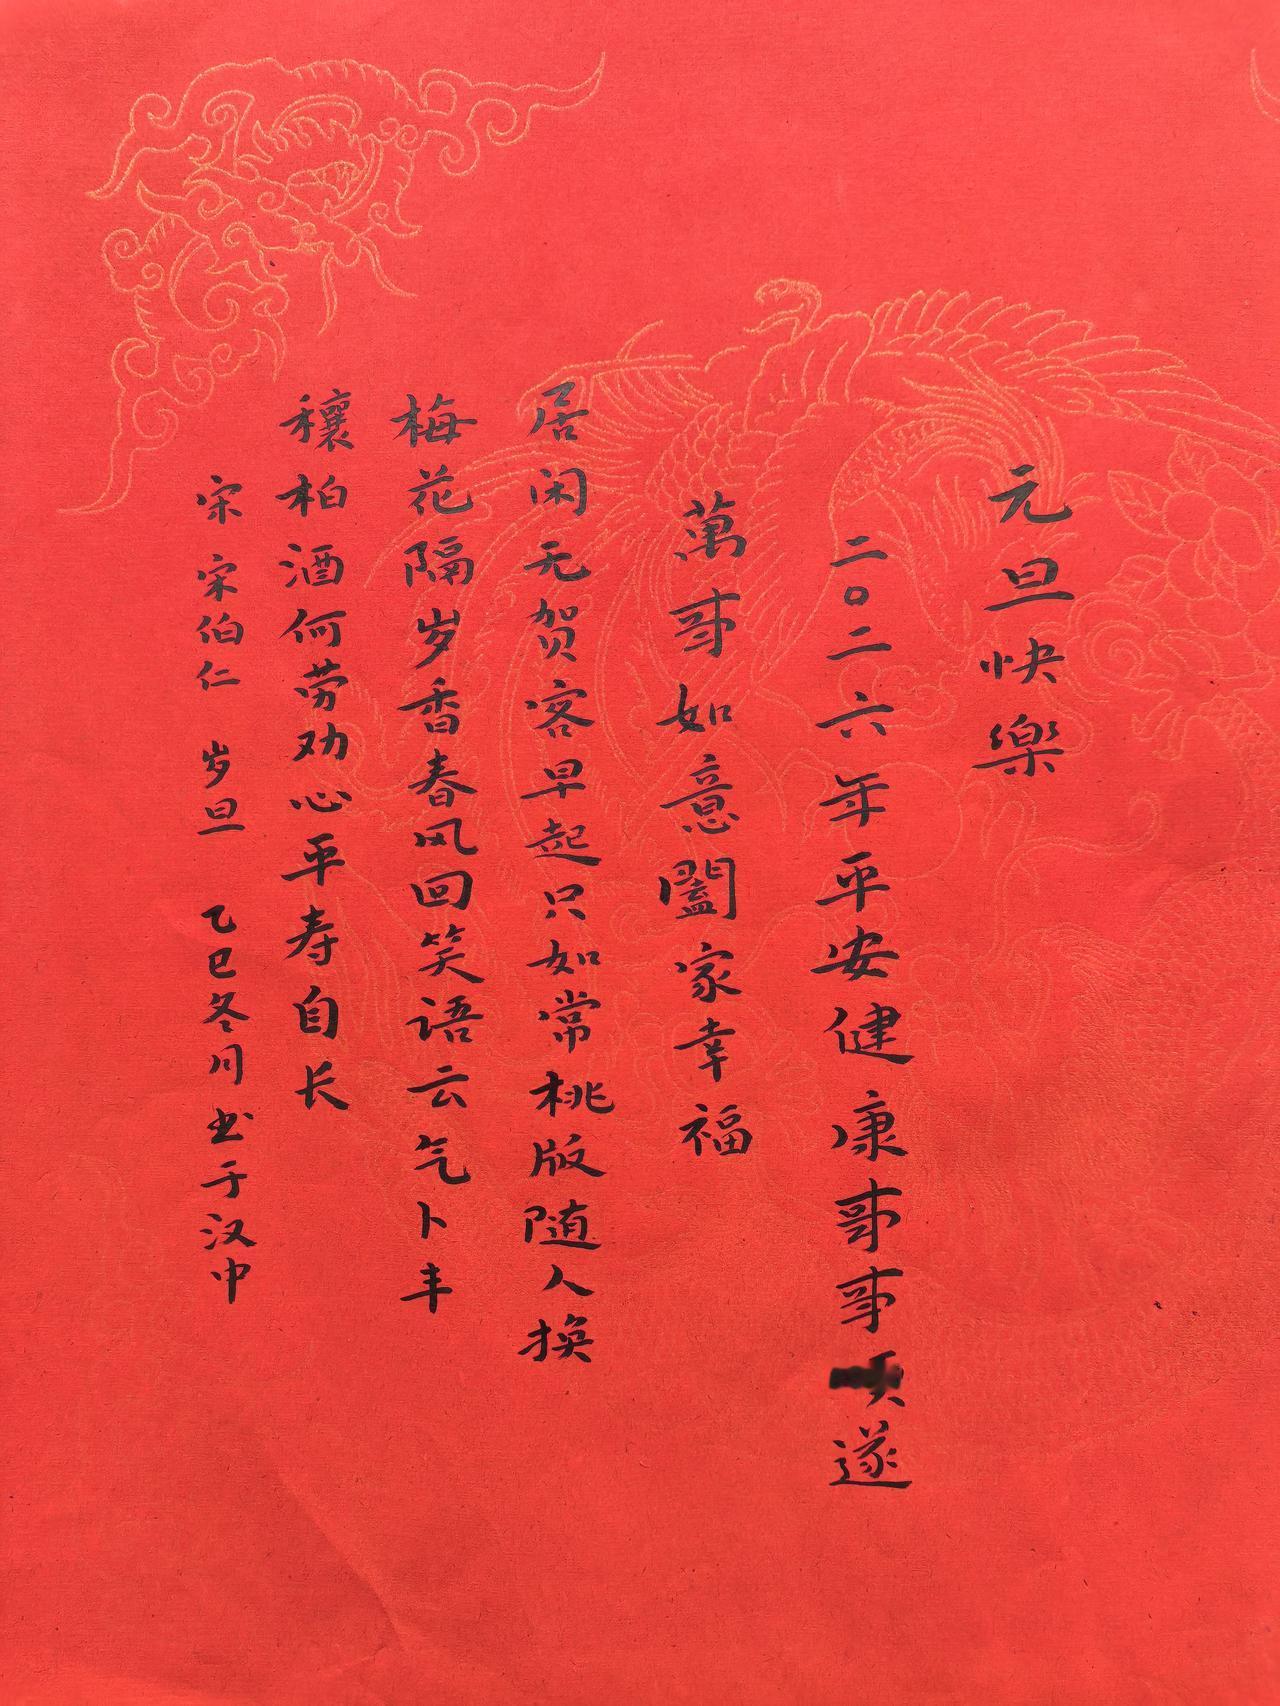 元旦快樂
二〇二六年平安健康事事遂
萬事如意闔家幸福
居闲无贺客早起只如常桃版随人换
梅花隔岁香春风回笑语云气卜丰
穰柏酒何劳劝心平寿自长
宋 宋伯仁 岁旦 乙巳冬月书于汉中